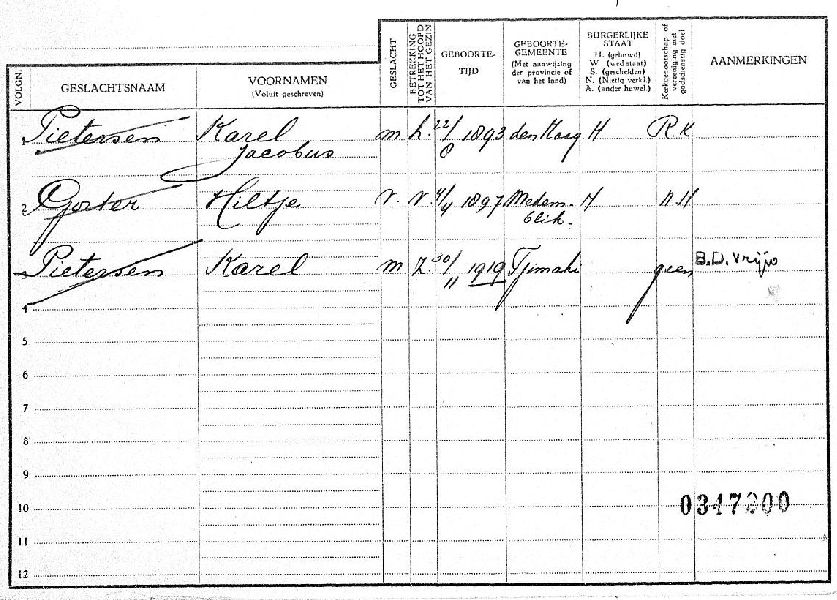 VOLGN. GESLACHTSNAAM VOORNAMEN GESLACHT BETREKKING TOT HET HOOFD VAN HET GEZIN GEBOORTE- GEBOORTE- BURGERLIJKE Kerkgenootschap of AANMERKINGEN
(Voluit geschreven) TIJD GEMEENTE STAAT vereeniging met
(Met aanwijzing H. (gehuwd) godsdienstig doel
der provincie of W. (wed.staat)
van het land) S. (gescheiden)
N. (Nietig verkl.)
A. (ander huwel.)
1 Pietersen Karel m h. 22/8 1893 den Haag H R K
Jacobus
2 Gorter Hiltje v. v. 4/4 1897 Medem- H N H
blik.
3 Pietersen Karel m z. 30/11 1919 Tjimahi geen B.D. Vrijo
4
5
6
7
8
9
10 0347200
11
12